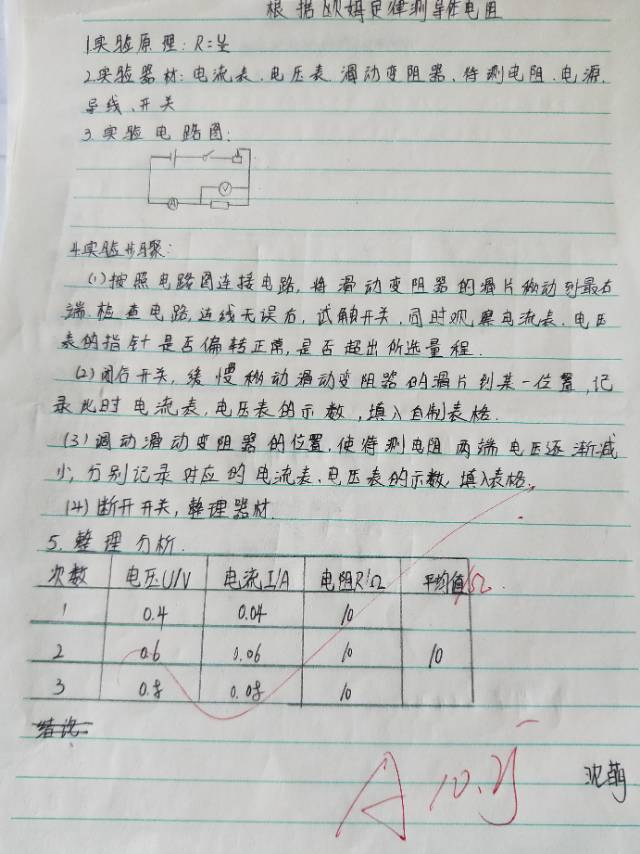 根据欧姆定律测导体电阻
1.实验原理:R=U/I
2.实验器材:电流表、电压表 滑动变阻器、待测电阻、电源、
导线、开关
3.实验电路图:
V
A
4.实验步骤:
(1)按照电路图连接电路,将滑动变阻器的滑片移动到最右
端.检查电路,连线无误后,试触开关,同时观察电流表、电压
表的指针是否偏转正常,是否超出所选量程.
(2)闭合开关,缓慢移动滑动变阻器的滑片到某一位置,记
录此时电流表、电压表的示数,填入自制表格.
(3)调动滑动变阻器的位置,使待测电阻两端电压逐渐减
小,分别记录对应的电流表、电压表的示数,填入表格.
(4)断开开关,整理器材.
5.整理分析.
次数 电压U/V 电流I/A 电阻R/Ω 平均值/Ω
1 0.4 0.04 10
2 0.6 0.06 10 10
3 0.8 0.08 10
结论:
A 10.25
沈萌